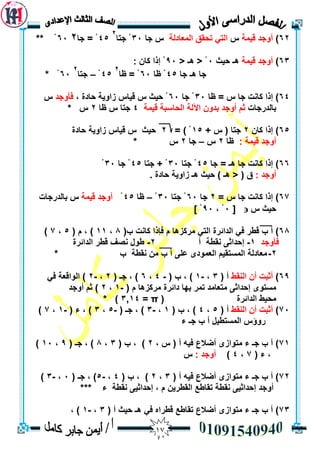 الفصل الدراسى الأول
الصف الثالث الإعدادى
62) أوجد قيمة س التي تحقق المعادلة س جا 30 ْ جتا² 45 ْ = جا² 60 ْ **
63) أوجد قيمة هـ حيث 0 ْ < هـ < 90 ْ إذا كان :
جا هـ جا 45 ْ ظا 60 ْ = ظا² 45 ْ – جتا² 60 ْ *
64) إذا كانت جا س = ظا 30 ْ جا 60 ْ حيث س قياس زاوية حادة ، فأوجد س
بالدرجات ثم أوجد بدون الألة الحاسبة قيمة 4 جتا س ظا 2 س *
65) إذا كان 2 جتا ( س + 15 ْ ) = √2 حيث س قياس زاوية حادة
أوجد قيمة : ظا 2 س – جا 2 س *
66) إذا كانت جا هـ = جا 45 ْ جتا 30 ْ + جتا 45 ْ جا 30 ْ
أوجد : ق ( > هـ ) حيث هـ زاوية حادة .
67) إذا كانت جا س = 2 جا 60 ْ جتا 30 ْ – ظا 45 ْ أوجد قيمة س بالدرجات
حيث س ∈ [ 0 ْ ، 90 ْ ]
68) أ ب قطر في الدائرة التي مركزها م فإذا كانت ب( 8 ، 11 ) ، م ( 5 ، 7 )
فأوجد 1- إحداثى نقطة أ 2- طول نصف قطر الدائرة
2- معادلة المستقيم العمودى على أ ب من نقطة ب *
69) أثبت أن النقط أ ( 3 ، -1 ) ، ب ( -4 ، 6 ) ، جـ ( 2 ، -2 ) الواقعة في
مستوى إحداثي متعامد تمر بها دائرة مركزها م ( -1 ، 2 ) ثم أوجد
محيط الدائرة ( π = 3,14 ) *
70) أثبت أن النقط أ ( 5 ، 4 ) ، ب ( 1 ، -3 ) ، جـ ( -5 ، 3 ) ، ء ( -1 ، 7 )
رؤوس المستطيل أ ب جـ ء
71) أ ب جـ ء متوازى أضلاع فيه أ ( س ، 2 ) ، ب ( 3 ، 8 ) ، جـ ( 9 ، 10 )
، ء ( 7 ، 4 ) أوجد : س
72) أ ب جـ ء متوازى أضلاع فيه أ ( 3 ، 2 ) ، ب ( 4 ، -5 ) ، جـ ( 0 ، -3 )
أوجد إحداثيى نقطة تقاطع القطرين م ، إحداثيى نقطة ء ***
73) أ ب جـ ء متوازى أضلاع تقاطع قطراه في هـ حيث أ ( 3 ، -1 ) ،
أ/ أيمن جابر كامل
17
01091540940